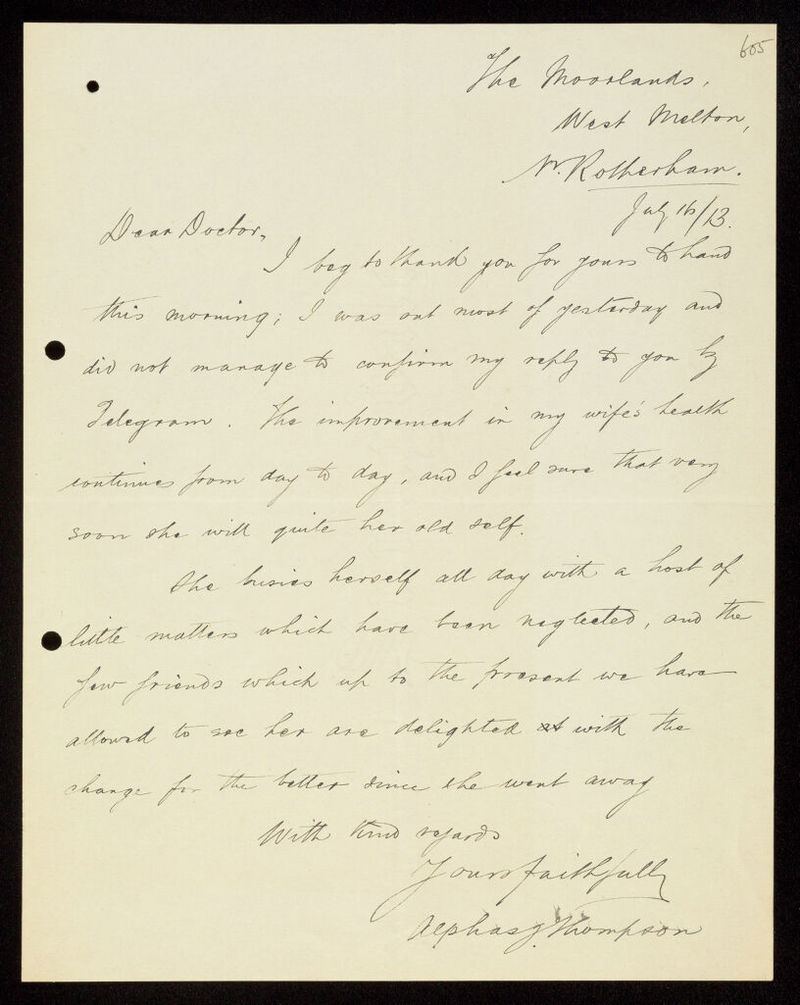 605
The Moorlands,
West Melton,
Nr. Rotherham.
July 16/13.
Dear Doctor,
I beg to thank you for yours to hand
this morning; I was out most of yesterday and
did not manage to confirm my reply to you by
Telegram. The improvement in my wife's health
continues from day to day, and I feel sure that very
soon she will quite her old self.
She busies herself all day with a host of
little matters which have been neglected, and the
few friends which up to the present we have
allowed to see her are delighted at with the
change for the better since she went away
With kind regards
Yours faithfully
Alphas J. Thompson